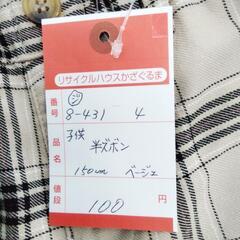 リサイクルハウスかざぐるま
番号 ジ 8-431 4
品名 子供 半ズボン 150cm ベージュ
値段 100 円